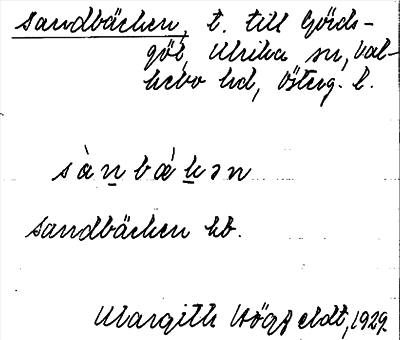 Sandbäcken, t. till Gärds-
göl, Ulrika sn, Val-
kebo hd, Österg. l.
sànbákən
Sandbäcken kb.
Margith Högfeldt, 1929.